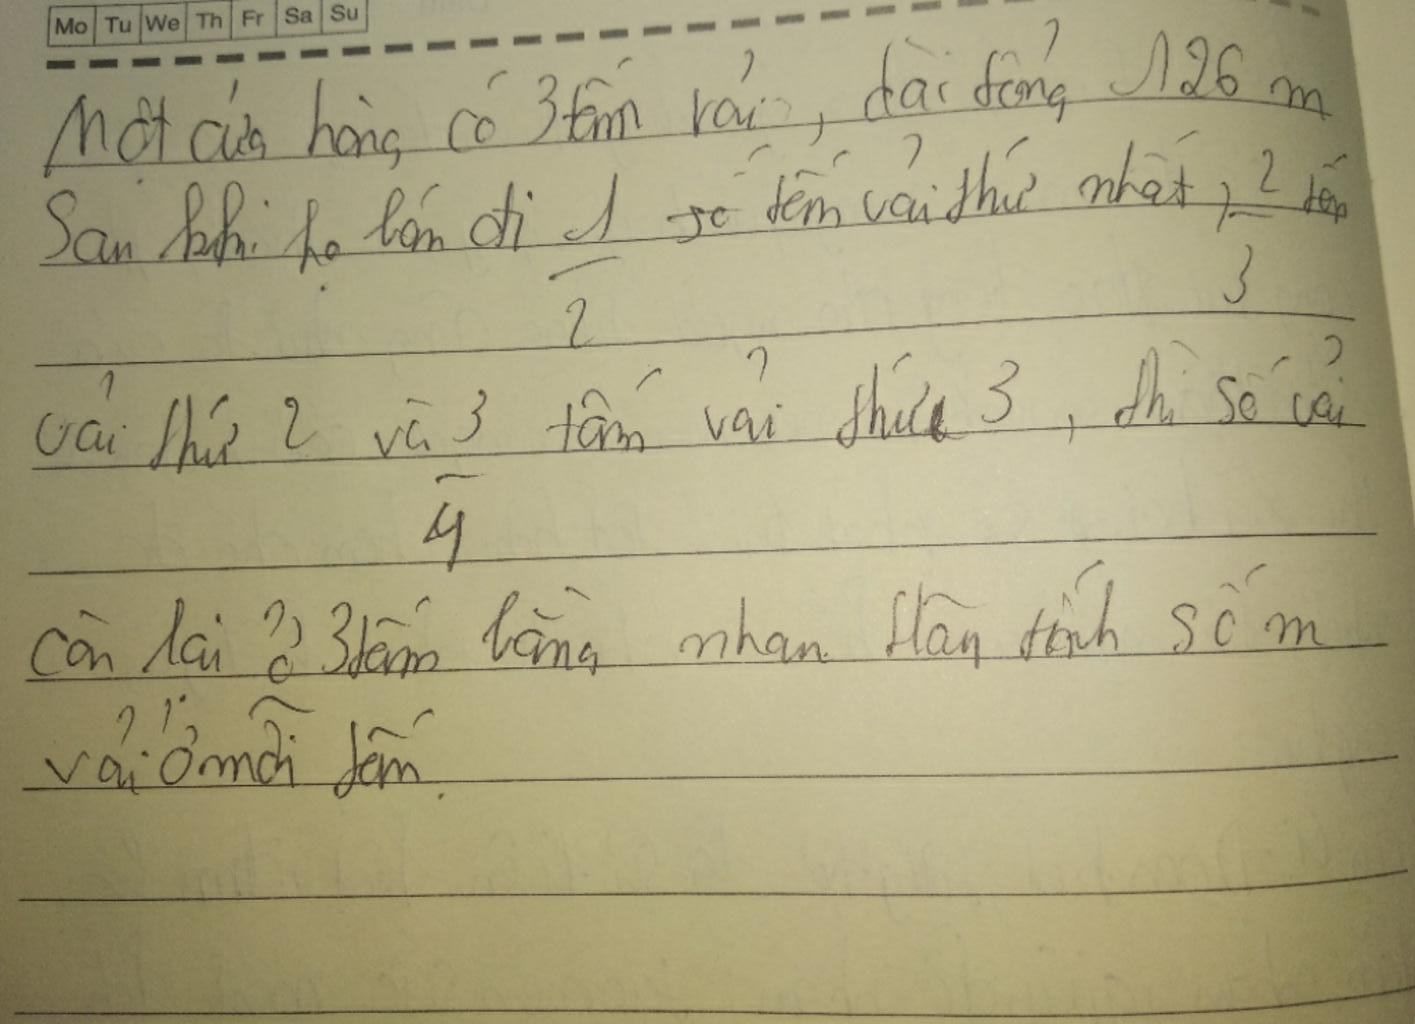 Mo Tu We Th Fr Sa Su
Một cửa hàng có 3 tấm vải, dài tổng 126 m
Sau khi họ bán đi 1/2 số tấm vải thứ nhất, 2/3 tấm
vải thứ 2 và 3/4 tấm vải thứ 3, thì số vải
còn lại ở 3 tấm bằng nhau. Hãy tính số m
vải ở mỗi tấm.